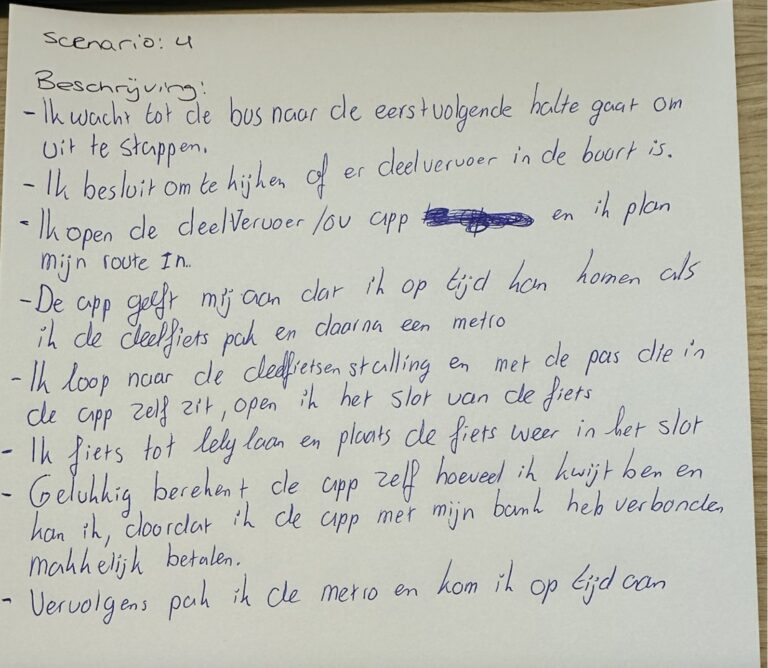 Scenario: 4
Beschrijving:
- Ik wacht tot de bus naar de eerstvolgende halte gaat om
uit te stappen.
- Ik besluit om te kijken of er deelvervoer in de buurt is.
- Ik open de deelvervoer/ov app en ik plan
mijn route in..
- De app geeft mij aan dat ik op tijd kan komen als
ik de deelfiets pak en daarna een metro
- Ik loop naar de deelfietsenstalling en met de pas die in
de app zelf zit, open ik het slot van de fiets
- Ik fiets tot lelylaan en plaats de fiets weer in het slot
- Gelukkig berekent de app zelf hoeveel ik kwijt ben en
kan ik, doordat ik de app met mijn bank heb verbonden
makkelijk betalen.
- Vervolgens pak ik de metro en kom ik op tijd aan